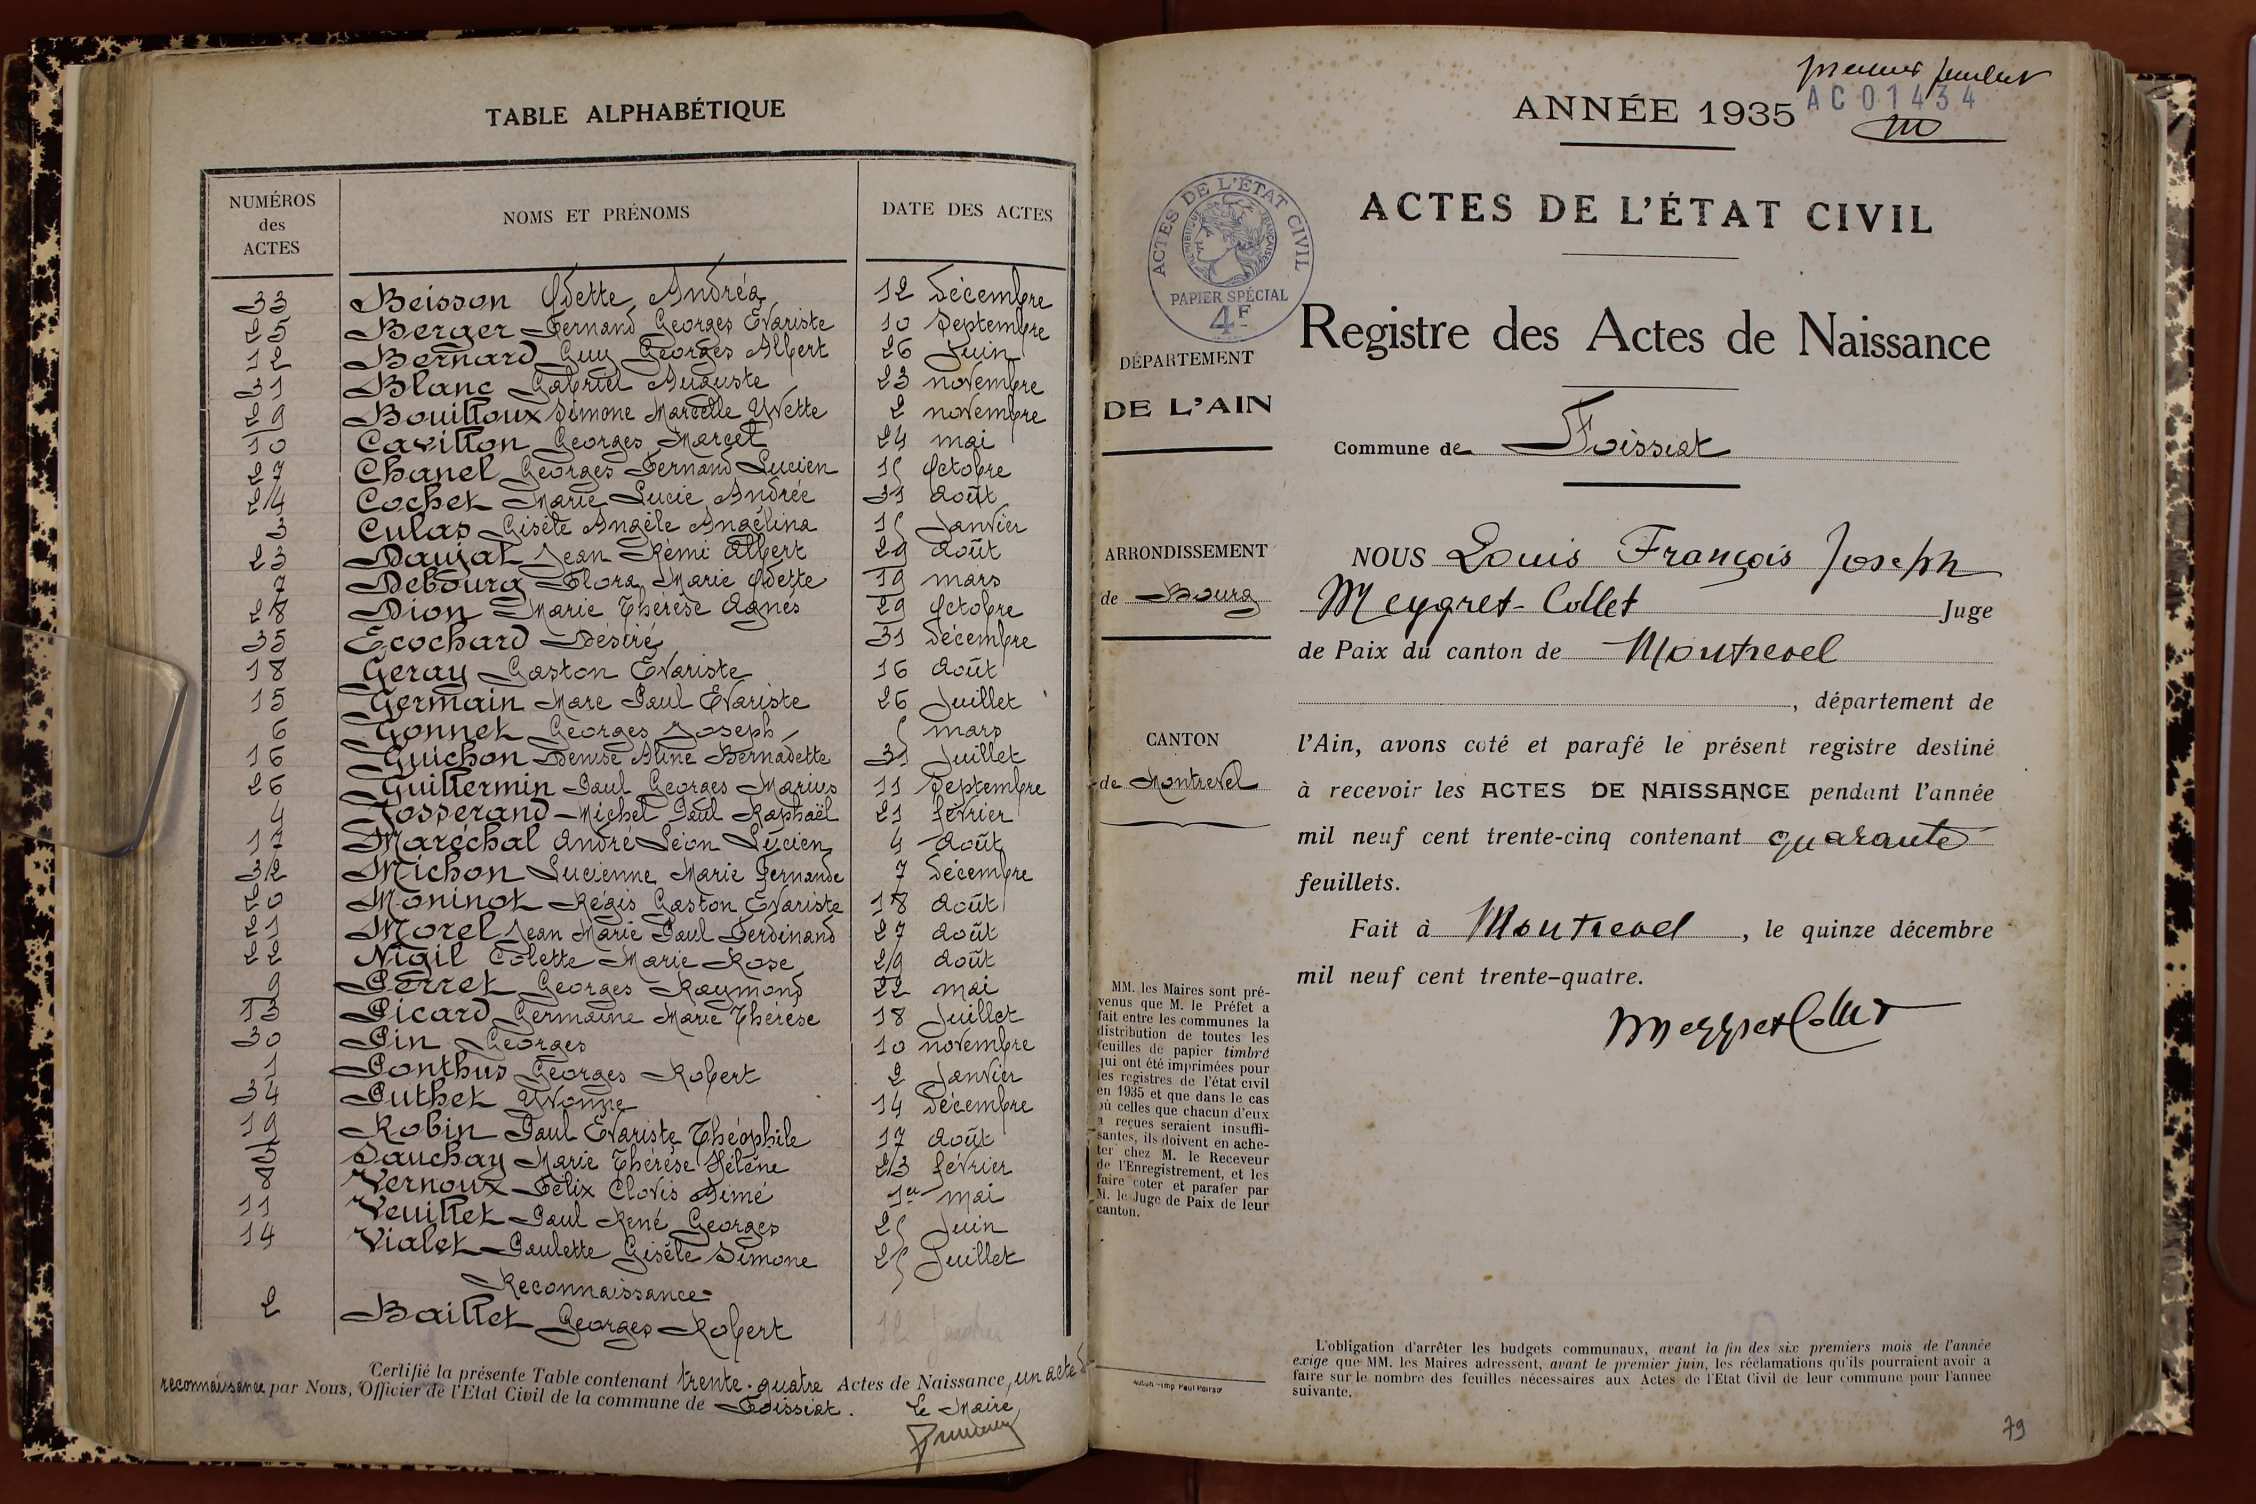 TABLE ALPHABÉTIQUE
NUMÉROS des ACTES NOMS ET PRÉNOMS DATE DES ACTES
33 Beisson Odette Andréa 12 Décembre
25 Berger Fernand Georges Evariste 10 Septembre
12 Bernard Guy Georges Albert 26 Juin
31 Blanc Gabriel Auguste 23 novembre
29 Bouilloux Simone Marcelle Yvette 2 novembre
10 Cavillon Georges Marcel 24 mai
27 Chanel Georges Fernand Lucien 15 Octobre
24 Cochet Marie Lucie Andrée 31 Août
3 Culas Gisèle Angèle Angélina 15 Janvier
23 Daujat Jean Rémi Albert 29 Août
7 Debourg Flora Marie Odette 19 mars
28 Dion Marie Thérèse Agnès 29 Octobre
35 Ecochard Désiré 31 Décembre
18 Geray Gaston Evariste 16 Août
15 Germain Marc Paul Evariste 26 Juillet
6 Gonnet Georges Joseph 5 mars
16 Guichon Denise Aline Bernadette 31 Juillet
26 Guillermin Paul Georges Marius 11 Septembre
4 Josserand Michel Paul Raphaël 21 février
17 Maréchal André Léon Lucien 4 Août
32 Michon Lucienne Marie Fernande 7 Décembre
20 Moninot Régis Gaston Evariste 18 Août
21 Morel Jean Marie Paul Ferdinand 27 Août
22 Nigil Colette Marie Rose 29 Août
9 Perret Georges Raymond 22 mai
13 Picard Germaine Marie Thérèse 18 Juillet
30 Pin Georges 10 novembre
1 Ponthus Georges Robert 2 Janvier
34 Puthet Yvonne 14 Décembre
19 Robin Paul Evariste Théophile 17 Août
5 Sauchay Marie Thérèse Hélène 23 février
8 Vernoux Félix Clovis Aimé 1er mai
11 Veuillet Paul René Georges 25 Juin
14 Vialet Paulette Gisèle Simone 25 Juillet
Reconnaissance
2 Baillet Georges Robert 12 Janvier
Certifié la présente Table contenant trente-quatre Actes de Naissance, un acte de
reconnaissance par Nous, Officier de l'Etat Civil de la commune de Foissiat.
Le Maire
premier feuillet
ANNÉE 1935
AC01434
ACTES DE L'ÉTAT CIVIL
RÉPUBLIQUE FRANÇAISE
PAPIER SPÉCIAL
4F
DÉPARTEMENT
DE L'AIN
ARRONDISSEMENT
de Bourg
CANTON
de Montrevel
MM. les Maires sont pré-
venus que M. le Préfet a
fait entre les communes la
distribution de toutes les
feuilles de papier timbré
qui ont été imprimées pour
les registres de l'état civil
en 1935 et que dans le cas
où celles que chacun d'eux
a reçues seraient insuffi-
santes, ils doivent en ache-
ter chez M. le Receveur
de l'Enregistrement, et les
faire coter et parafer par
M. le Juge de Paix de leur
canton.
ACTES DE L'ÉTAT CIVIL
Registre des Actes de Naissance
Commune de Foissiat
NOUS Louis François Joseph
Meygret-Collet Juge
de Paix du canton de Montrevel
, département de
l'Ain, avons coté et parafé le présent registre destiné
à recevoir les ACTES DE NAISSANCE pendant l'année
mil neuf cent trente-cinq contenant quarante
feuillets.
Fait à Montrevel, le quinze décembre
mil neuf cent trente-quatre.
Meygret Collet
L'obligation d'arrêter les budgets communaux, avant la fin des six premiers mois de l'année
exige que MM. les Maires adressent, avant le premier juin, les réclamations qu'ils pourraient avoir a
faire sur le nombre des feuilles nécessaires aux Actes de l'Etat Civil de leur commune pour l'année
suivante.
79